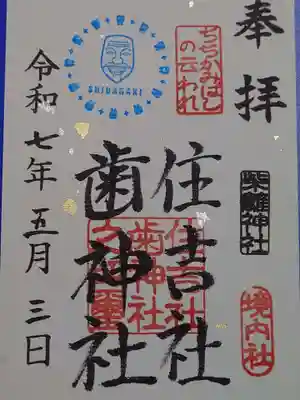 奉拝
ちぢかみはし
の云われ
柴籬神社
境内社
住吉社
歯神社
住吉社
歯神社
之璽
SHIBAGAKI
令和七年五月三日